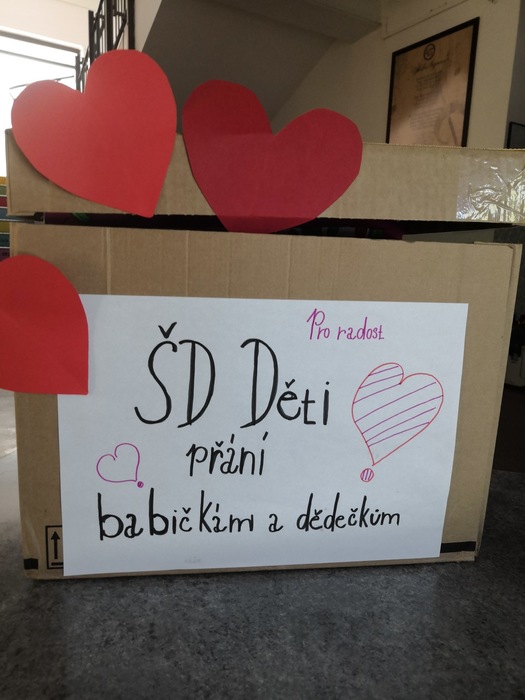 Pro radost
ŠD Děti
přání
babičkám a dědečkům